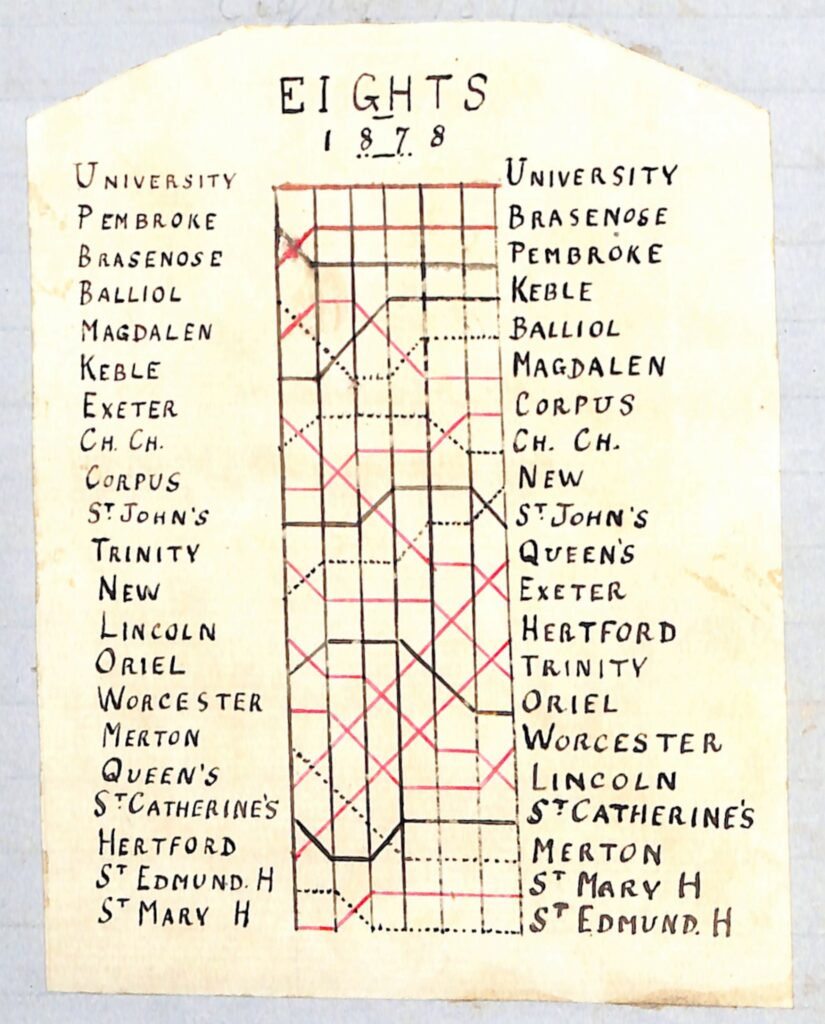 EIGHTS
1878
UNIVERSITY UNIVERSITY
PEMBROKE BRASENOSE
BRASENOSE PEMBROKE
BALLIOL KEBLE
MAGDALEN BALLIOL
KEBLE MAGDALEN
EXETER CORPUS
CH. CH. CH. CH.
CORPUS NEW
ST JOHN'S ST JOHN'S
TRINITY QUEEN'S
NEW EXETER
LINCOLN HERTFORD
ORIEL TRINITY
WORCESTER ORIEL
MERTON WORCESTER
QUEEN'S LINCOLN
ST CATHERINE'S ST CATHERINE'S
HERTFORD MERTON
ST EDMUND. H ST MARY H
ST MARY H ST EDMUND. H